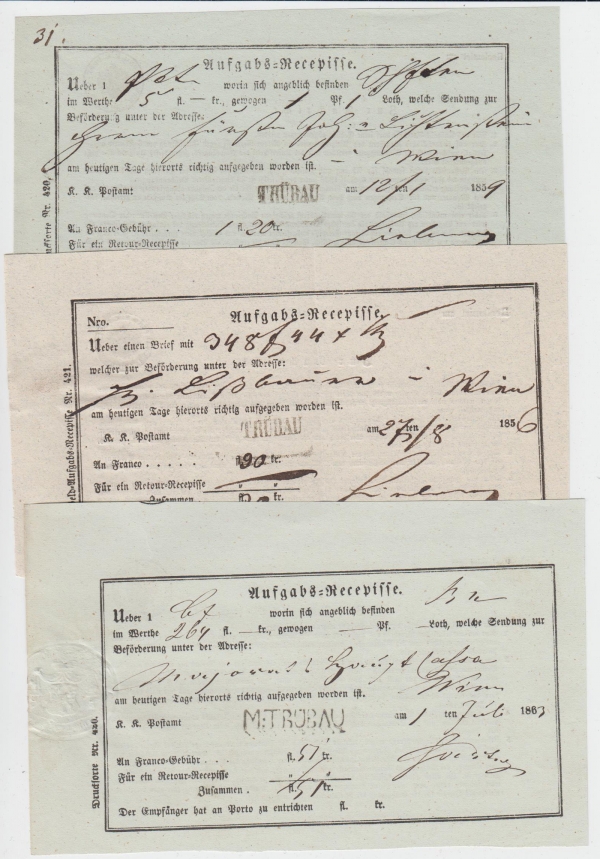 31.
Aufgabs-Recepisse.
Ueber 1 worin sich angeblich befinden
im Werthe 5 fl. — kr., gewogen 1 Pf. 1 Loth, welche Sendung zur
Beförderung unter der Adresse:
Herrn Fürsten Joh: v Lichtenstein
am heutigen Tage hierorts richtig aufgegeben worden ist. Wien
K. K. Postamt TRÜBAU am 12/ten 1 1859
An Franco-Gebühr . . . 1 fl. 20 kr.
Für ein Retour-Recepisse
Druckforte Nr. 420,
Nro.
Aufgabs-Recepisse.
Ueber einen Brief mit 348 f 44 x
welcher zur Beförderung unter der Adresse:
Wien
am heutigen Tage hierorts richtig aufgegeben worden ist.
K. K. Postamt TRÜBAU am 27/ten 8 1856
An Franco . . . . . fl. 90 kr.
Für ein Retour-Recepisse " "
Zusammen . fl.
Geld-Aufgabs-Recepisse Nr. 421.
Aufgabs-Recepisse.
Ueber 1 Bf worin sich angeblich befinden
im Werthe 264 fl. — kr., gewogen — Pf. — Loth, welche Sendung zur
Beförderung unter der Adresse:
Majorats Haupt Cassa
am heutigen Tage hierorts richtig aufgegeben worden ist. Wien
K. K. Postamt M:TRÜBAU am 1 ten Juli 1863
An Franco-Gebühr . . . fl. 51 kr.
Für ein Retour-Recepisse " "
Zusammen . fl. 51 kr.
Der Empfänger hat an Porto zu entrichten fl. kr.
Druckforte Nr. 420.